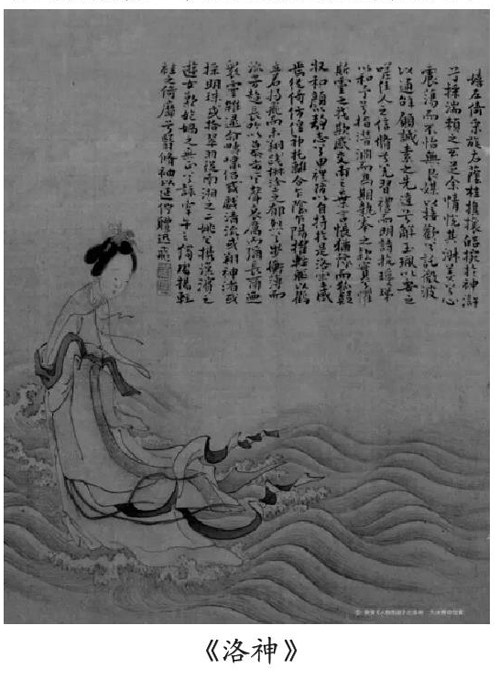 嬉左倚采旄右蔭桂旗攘皓腕於神滸
兮採湍瀨之玄芝余情悅其淑美兮心
震蕩而不怡無良媒以接歡兮託微波
以通辭願誠素之先達兮解玉珮以要之
嗟佳人之信脩兮羌習禮而明詩抗瓊珶
以和予兮指潛淵而為期執拳拳之款實兮懼
斯靈之我欺感交甫之棄言悵猶豫而狐疑
收和顏以靜志兮申禮防以自持於是洛靈感
焉徙倚彷徨神光離合乍陰乍陽擢輕軀以鶴
立若將飛而未翔踐椒塗之郁烈兮步蘅薄而
流芳超長吟以永慕兮聲哀厲而彌長爾迺
眾靈雜遝命儔嘯侶或戲清流或翔神渚或
採明珠或拾翠羽從南湘之二妃兮攜漢濱之
遊女歎匏媧之無匹兮詠牽牛之獨處揚輕
袿之倚靡兮翳脩袖以延佇體迅飛
《洛神》